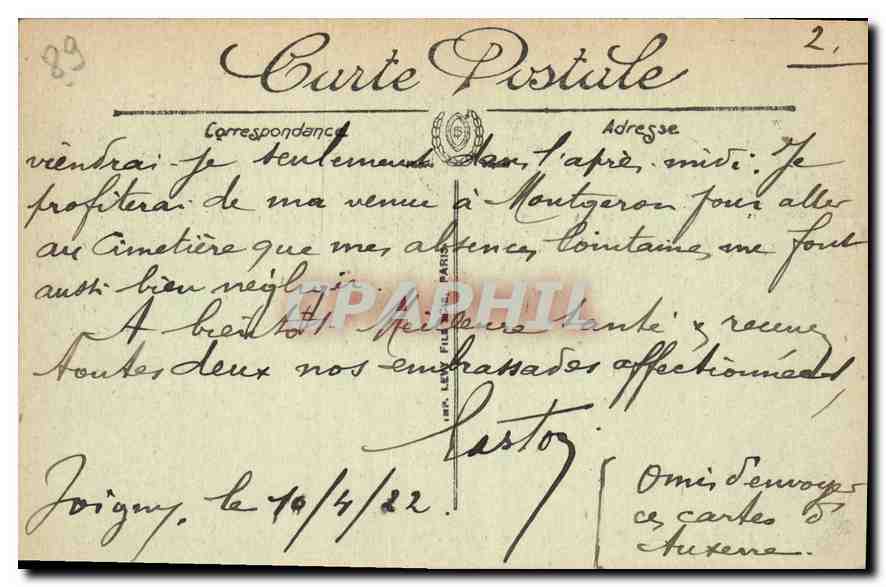 89
2.
Carte Postale
Correspondance
Adresse
viendrai-je seulement dans l'après-midi. Je
profiterai de ma venue à Montgeron pour aller
au Cimetière que mes absences lointaines me font
aussi bien négliger.
A bientôt Meilleure santé & recevez
toutes deux nos embrassades affectionnées
Joigny, le 10/4/22
Omis d'envoyer
ces cartes d'
Auxerre.
IMP. LEVY FILS & Cie, PARIS
CPAPHIL